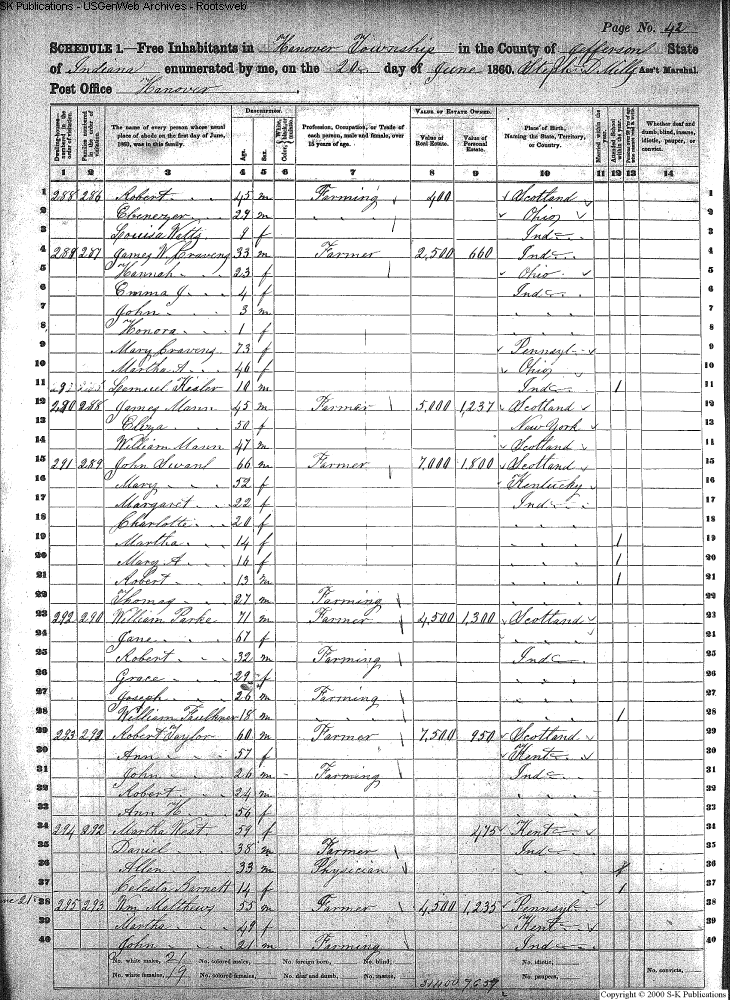 SK Publications - USGenWeb Archives - Rootsweb
Page No. 42
SCHEDULE 1.—Free Inhabitants in Hanover Township in the County of Jefferson State
of Indiana enumerated by me, on the 20 day of June 1860. Ass't Marshal.
Post Office Hanover
DESCRIPTION. VALUE OF ESTATE OWNED.
The name of every person whose usual place of abode on the first day of June, 1860, was in this family.
Age. Sex.
Profession, Occupation, or Trade of each person, male and female, over 15 years of age.
Value of Real Estate. Value of Personal Estate.
Place of Birth, Naming the State, Territory, or Country.
Whether deaf and dumb, blind, insane, idiotic, pauper, or convict.
1 2 3 4 5 6 7 8 9 10 11 12 13 14
1 288 286 Robert 45 m Farming 400 Scotland 1
2 Ebenezer 29 m " " Ohio 2
3 Louisa 9 f Ind 3
4 289 287 James W Cravens 33 m Farmer 2,500 660 Ind 4
5 Hannah 23 f Ohio 5
6 Emma J 4 f Ind 6
7 John 3 m " 7
8 Honora 1 f " 8
9 Mary Cravens 73 f Pennsyl 9
10 Martha A 46 f Ohio 10
11 Lemuel 10 m Ind / 11
12 290 288 James Mann 45 m Farmer 5,000 1,237 Scotland
13 Eliza 50 f New York 13
14 William Mann 47 m Scotland
15 291 289 John Swan 66 m Farmer 7,000 1,800 Scotland 15
16 Mary 52 f Kentucky 16
17 Margaret 22 f Ind 17
18 Charlotte 20 f " 18
19 Martha 14 f " / 19
20 Mary A 16 f " / 20
21 Robert 13 m " / 21
22 Thomas 27 m Farming "
23 292 290 William Parke 71 m Farmer 4,500 1,300 Scotland
24 Jane 67 f "
25 Robert 32 m Farming Ind
26 Grace 29 f "
27 Joseph 26 m Farming "
28 William Faulkner 18 m " " / 28
29 293 292 Robert Taylor 60 m Farmer 7,500 950 Scotland 29
30 Ann 57 f Kent 30
31 John 26 m Farming Ind 31
32 Robert 24 m " 32
33 Ann H 56 f " 33
34 294 292 Martha West 59 f 475 Kent 34
35 Daniel 38 m Farmer Ind 35
36 Allen 33 m Physician " 36
37 Celesta Barnett 14 f " / 37
38 295 293 Wm Matthews 55 m Farmer 4,500 1,235 Pennsyl 38
39 Martha 49 f Kent 39
40 John 21 m Farming Ind 40
No. white males, 21 No. colored males, No. foreign born, No. blind, No. idiotic, No. convicts,
No. white females, 19 No. colored females, No. deaf and dumb, No. insane, No. paupers,
Copyright © 2000 S-K Publications